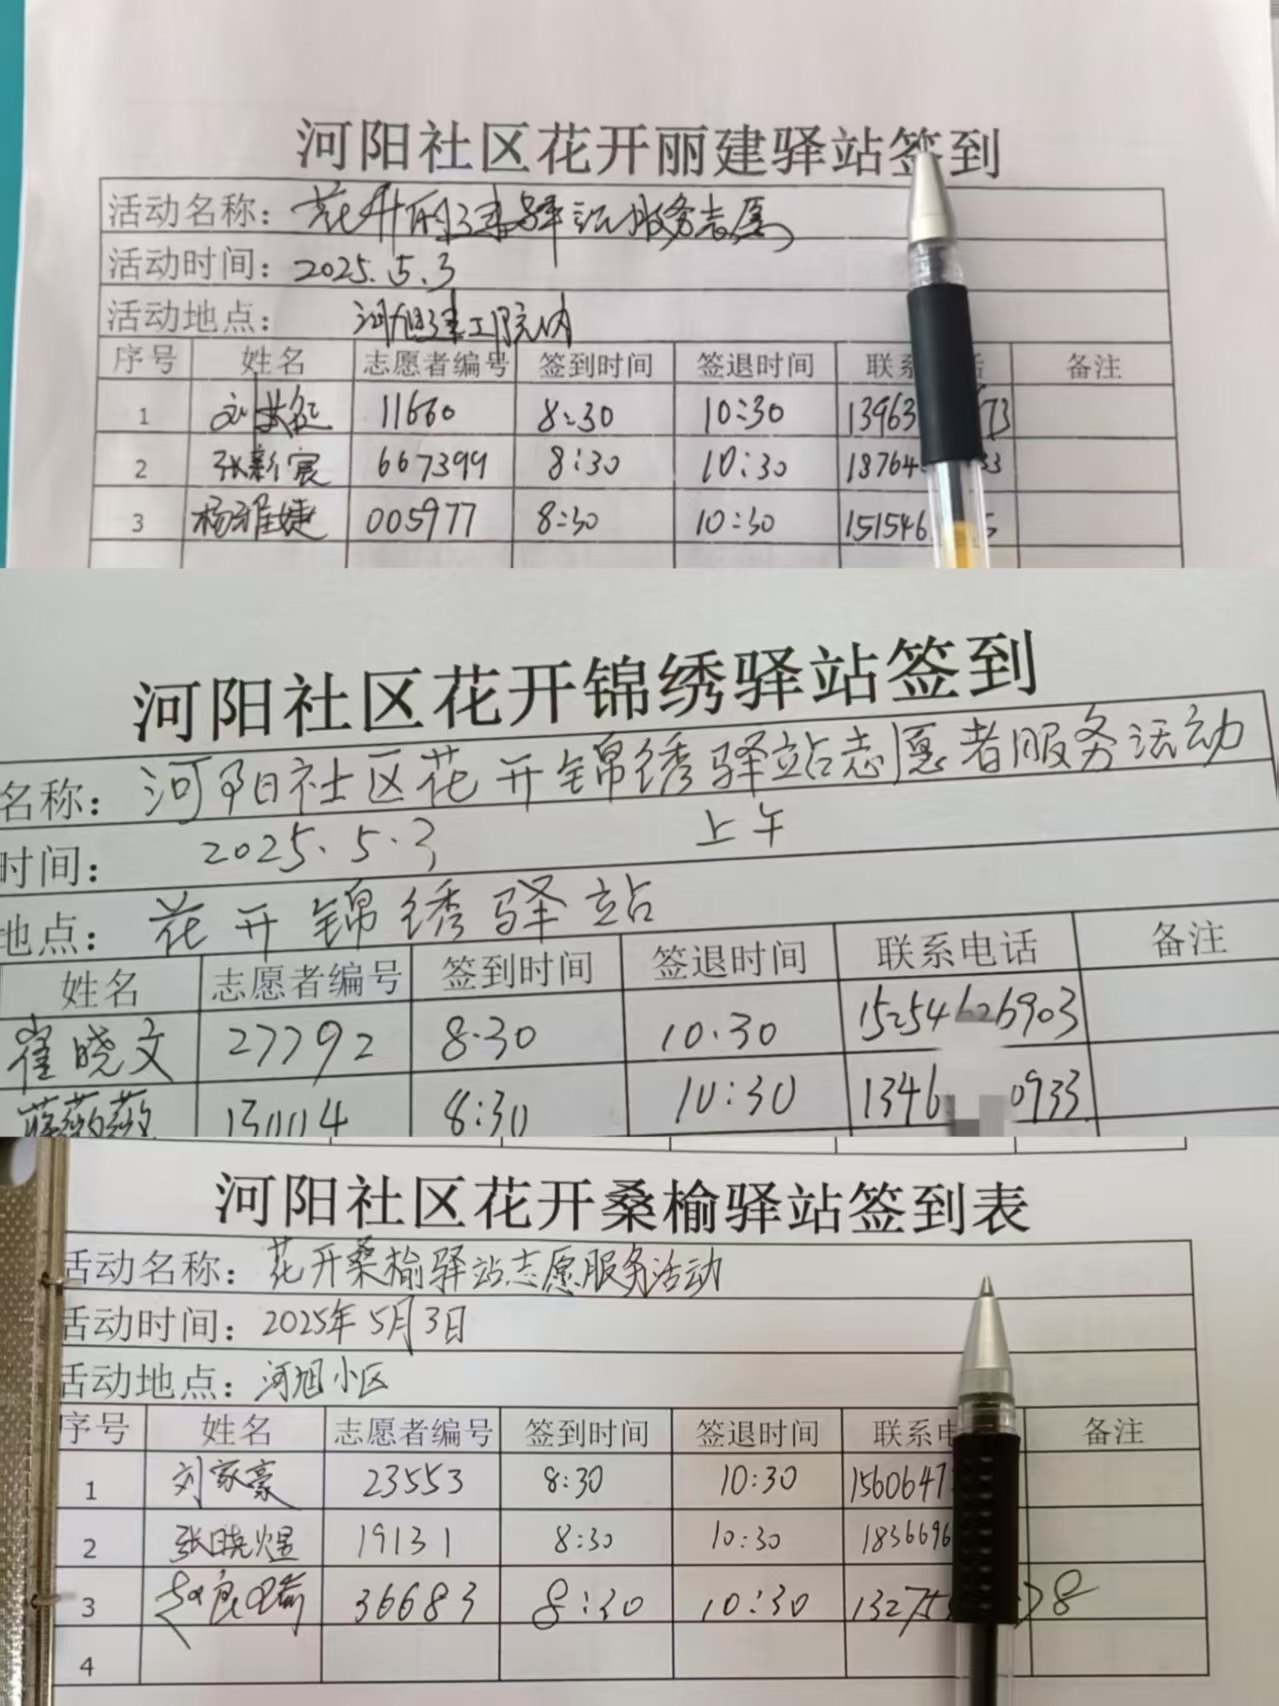 河阳社区花开丽建驿站签到
活动名称: 花开丽建驿站服务志愿
活动时间: 2025.5.3
活动地点: 河旭建工院内
序号 姓名 志愿者编号 签到时间 签退时间 联系 话 备注
1 刘 11660 8:30 10:30 13963 73
2 张新宸 667399 8:30 10:30 18764 33
3 杨雅婕 005977 8:30 10:30 151546
河阳社区花开锦绣驿站签到
名称: 河阳社区花开锦绣驿站志愿者服务活动
时间: 2025.5.3 上午
地点: 花开锦绣驿站
姓名 志愿者编号 签到时间 签退时间 联系电话 备注
崔晓文 27792 8:30 10:30 15254626903
8:30 10:30 1346 0933
河阳社区花开桑榆驿站签到表
活动名称: 花开桑榆驿站志愿服务活动
活动时间: 2025年5月3日
活动地点: 河旭小区
序号 姓名 志愿者编号 签到时间 签退时间 联系 备注
1 刘家豪 23553 8:30 10:30 1560647
2 张晓煜 19131 8:30 10:30 1836696
3 赵 36683 8:30 10:30 13275 78
4